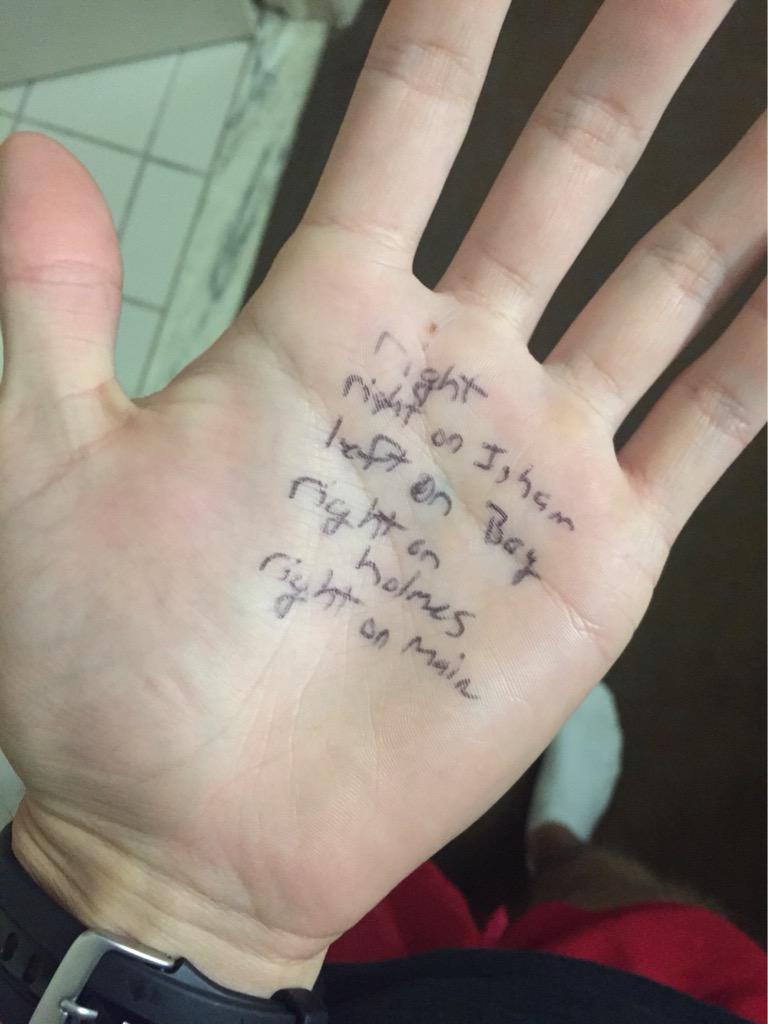 right
right on Isham
left on Bay
right on
holmes
right on Main